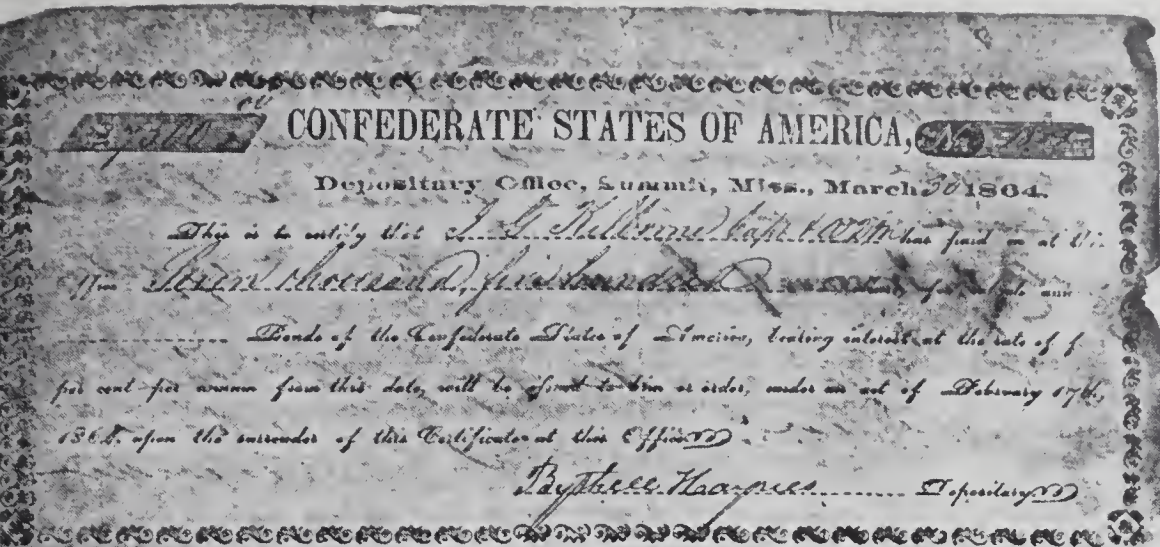 CONFEDERATE STATES OF AMERICA, No.
Depositary Office, Summit, Miss., March 30 1864.
This is to certify that J. G. Kilbourne has paid in at this
Office Seven thousand, five hundred
Bonds of the Confederate States of America, bearing interest at the rate of
per cent per annum from this date, will be issued to him or order, under an act of February 17th,
1864, upon the surrender of this Certificate at this Office.
Bythell Haynes Depositary